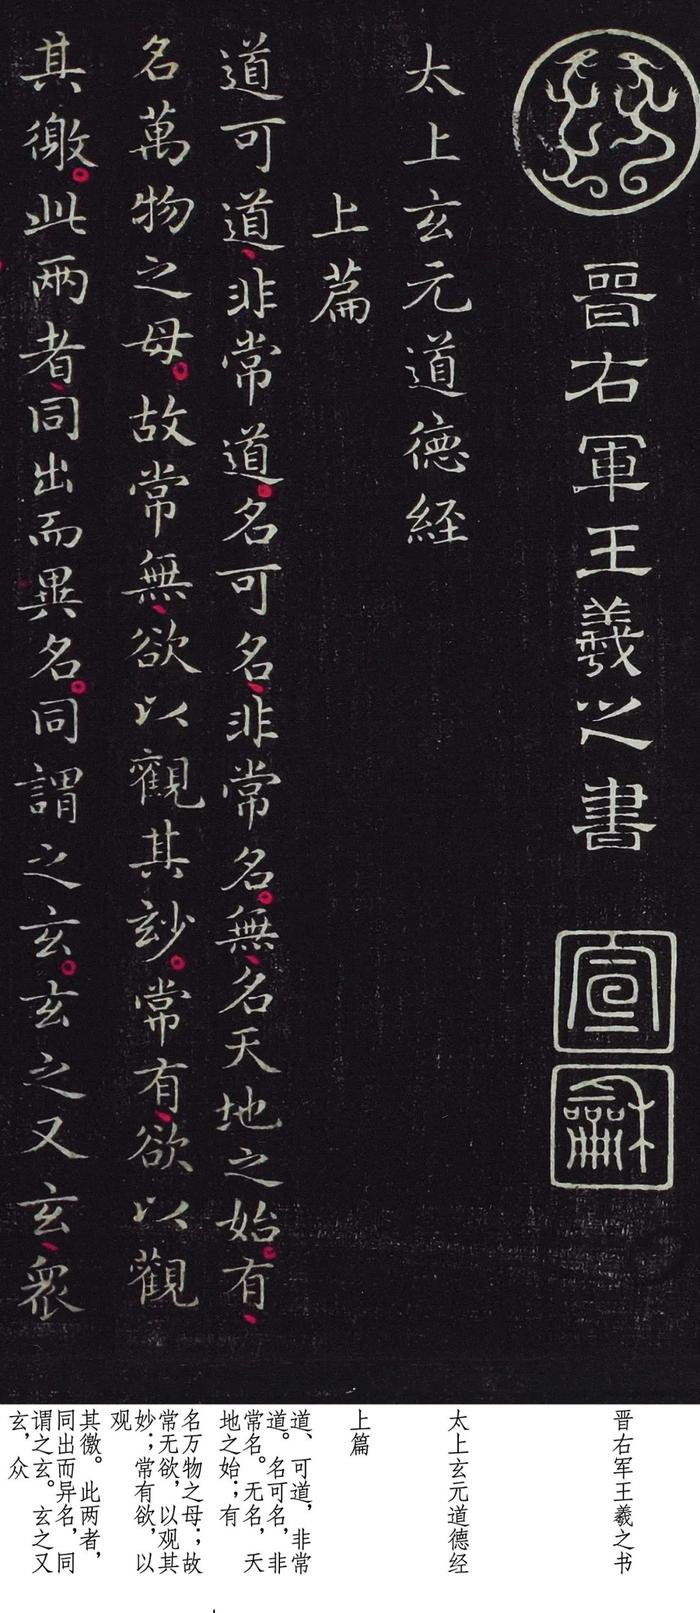 晉右軍王羲之書
宣
龢
太上玄元道德經
上篇
道可道非常道名可名非常名無名天地之始有
名萬物之母故常無欲以觀其玅常有欲以觀
其徼此两者同出而異名同謂之玄玄之又玄衆
晋右军王羲之书
太上玄元道德经
上篇
道、可道，非常
道。名可名，非
常名。无名，天
地之始；有
名万物之母；故
常无欲，以观其
妙；常有欲，以
观
其徼。此两者，
同出而异名，同
谓之玄。玄之又
玄，众